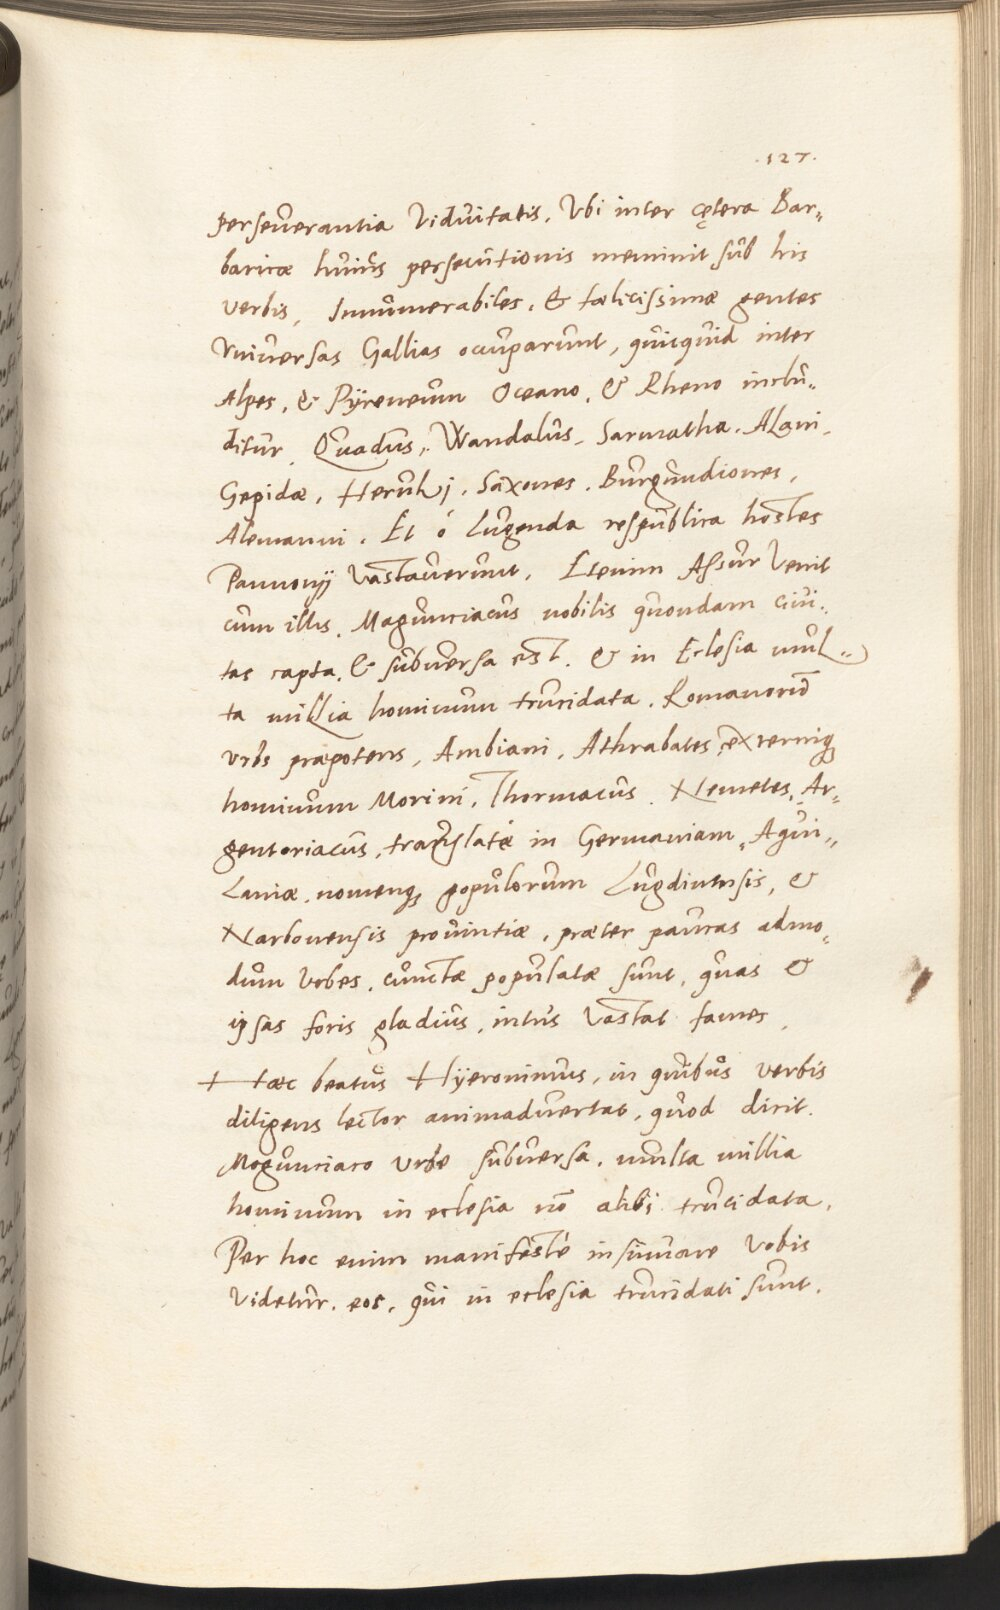 .127.
perseverantia Viduitatis. Ubi inter cętera Bar„
baricæ huius persecutionis meminit sub his
verbis, Innumerabiles, & fælicissimæ gentes
Universas Gallias ocuparunt, quicquid inter
Alpes, & Pÿreneum Oceano, & Rheno inclu„
ditur, Quadus, Wandalus, Sarmatha, Alani,
Gepidæ, Herulij, Saxones, Burgundiones,
Alemanni. Et ó lugenda respublica hostes
Pannonij Vastaverunt, Etenim Assur Venit
cum illis. Magunciacus nobilis quondam civi„
tas capta, & subversa est. & in Eclesia mul„
ta millia hominum trucidata. Romanorũ
urbs præpotens, Ambiani, Athrabates, externiq;
hominum Morini, Thormacus, Nemetes, Ar„
gentoriacus, translatæ in Germaniam, Aqui„
Laniæ, nomenq; populorum Lugdinensis, &
Narbonensis provintiæ, præter paucas admo„
dum Urbes, cunctæ populatæ sunt, quas &
ipsas foris gladius, intus Vastat fames,
Hæc beatus Hÿeronimus, in quibus verbis
diligens lector animadvertat, quod dicit.
Magunciaco urbe subversa, multa millia
hominum in eclesia nõ alibi trucidata,
Per hoc enim manifesté insinuare Vobis
Videtur, eos, qui in eclesia trucidati sunt,